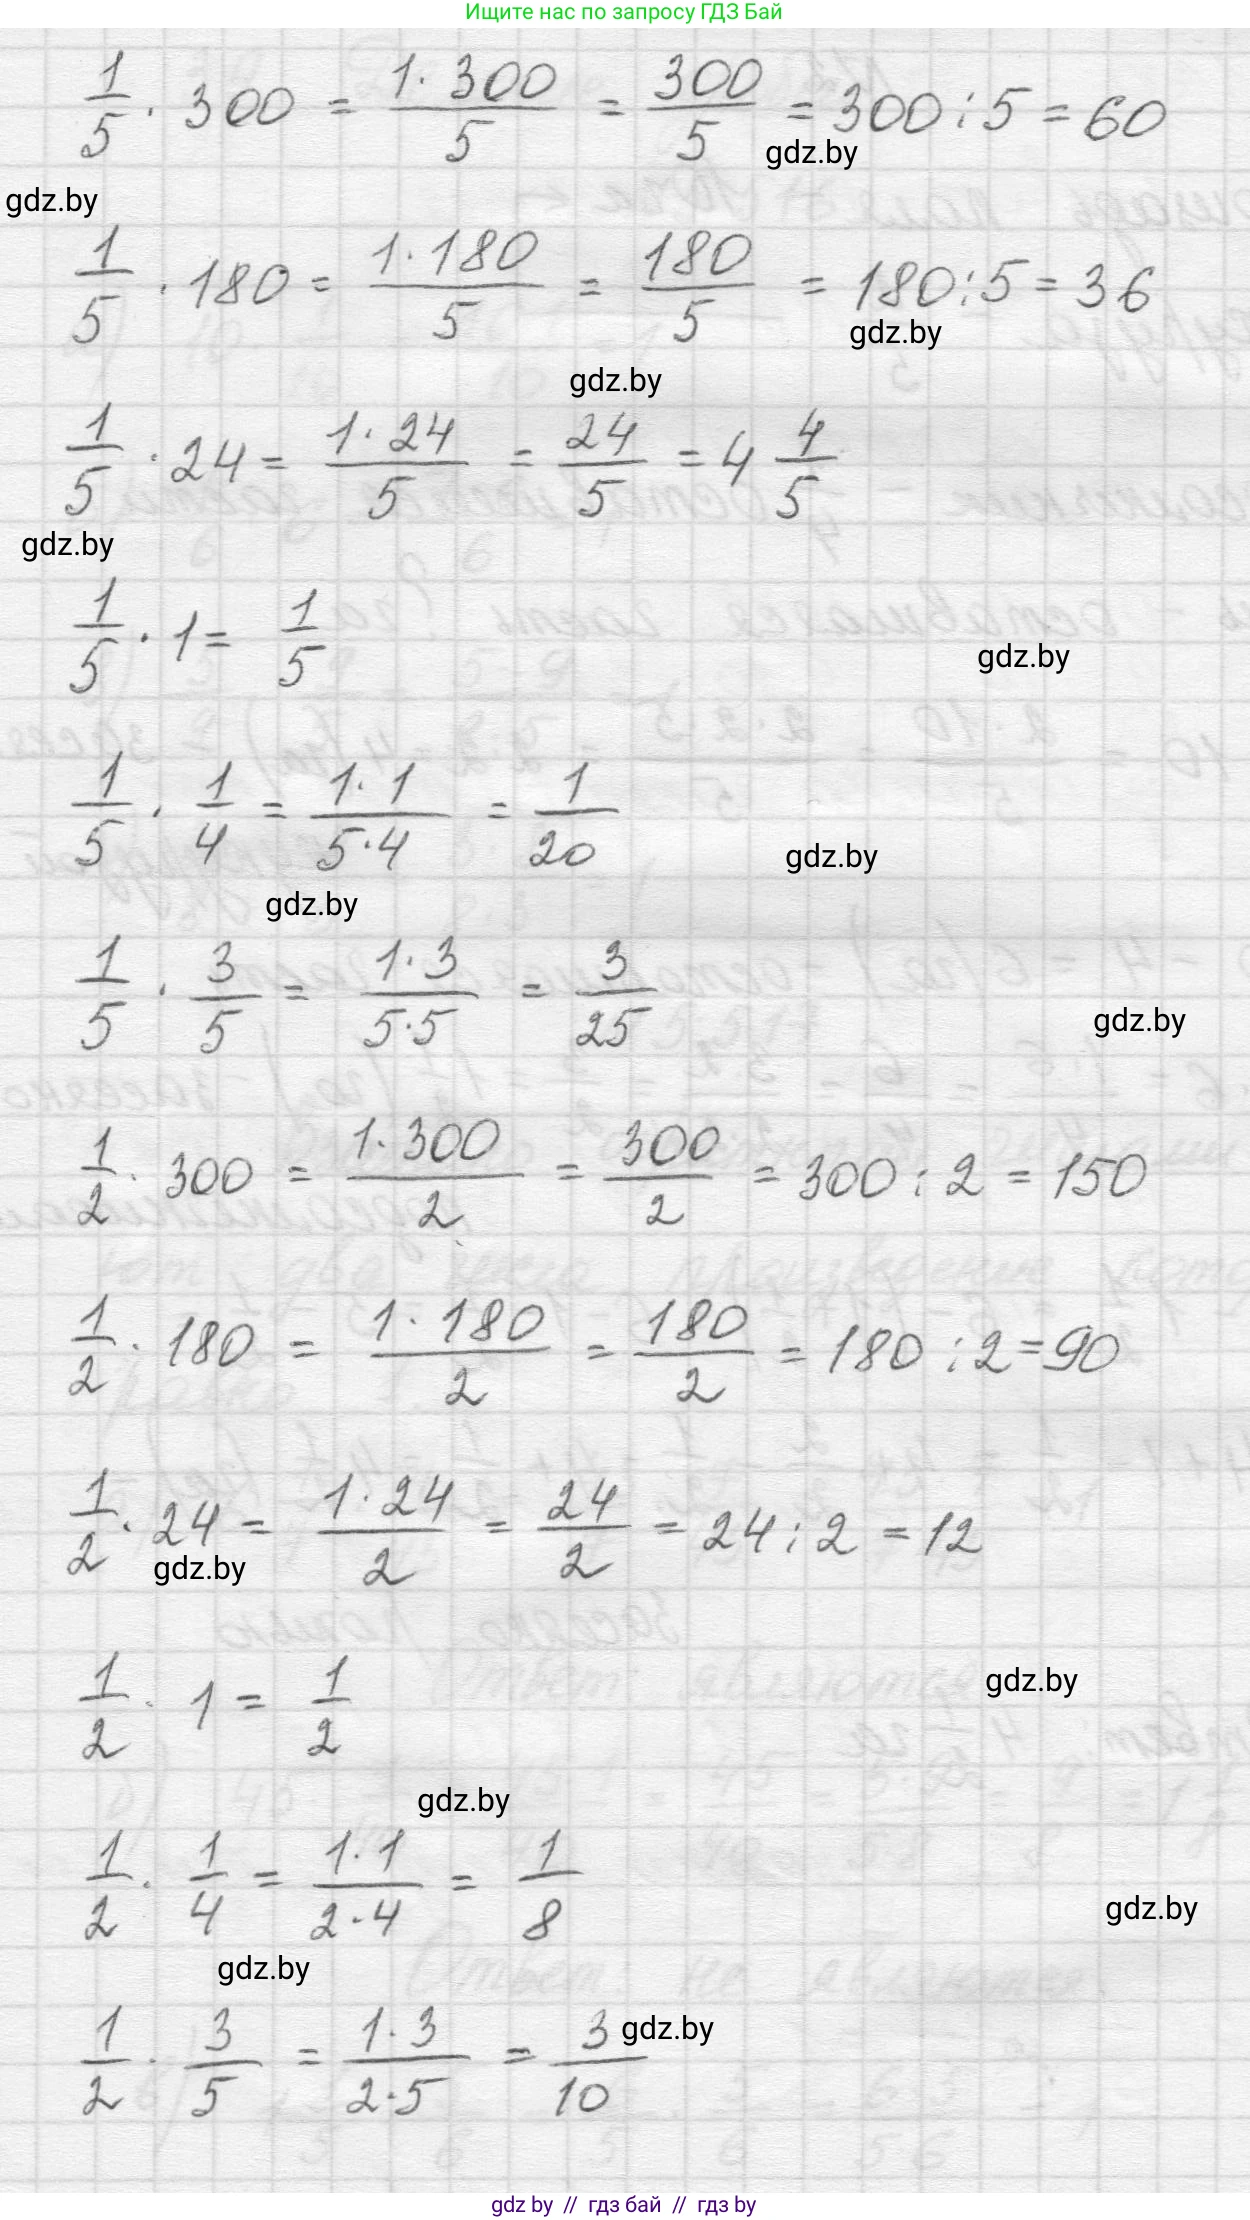 Ищите нас по запросу ГДЗ Бай
1/5 · 300 = 1·300/5 = 300/5 = 300:5 = 60
gdz.by
gdz.by
1/5 · 180 = 1·180/5 = 180/5 = 180:5 = 36
gdz.by
gdz.by
1/5 · 24 = 1·24/5 = 24/5 = 4 4/5
gdz.by
1/5 · 1 = 1/5
gdz.by
1/5 · 1/4 = 1·1/5·4 = 1/20
gdz.by
gdz.by
1/5 · 3/5 = 1·3/5·5 = 3/25
gdz.by
1/2 · 300 = 1·300/2 = 300/2 = 300:2 = 150
1/2 · 180 = 1·180/2 = 180/2 = 180:2 = 90
1/2 · 24 = 1·24/2 = 24/2 = 24:2 = 12
gdz.by
1/2 · 1 = 1/2
gdz.by
gdz.by
1/2 · 1/4 = 1·1/2·4 = 1/8
gdz.by
gdz.by
1/2 · 3/5 = 1·3/2·5 = 3/10
gdz.by
gdz by // гдз бай // гдз by